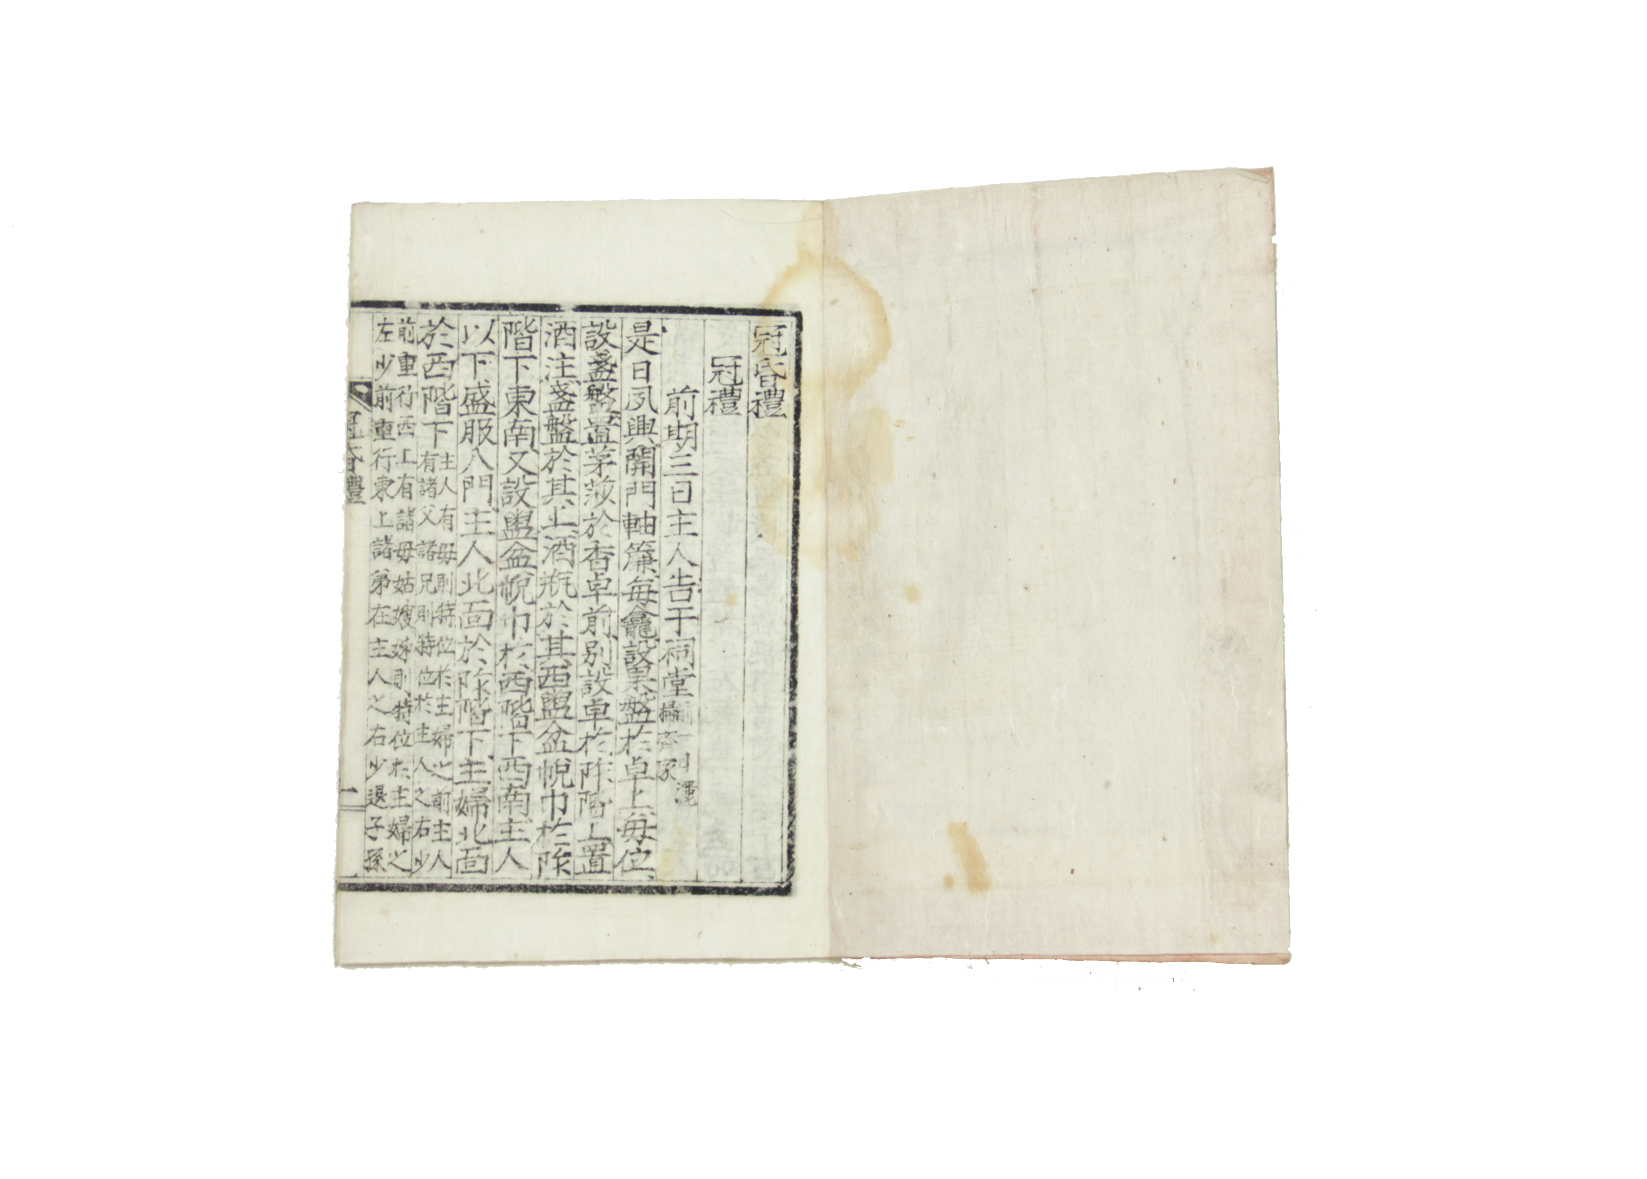 冠昏禮
冠禮
前期三日主人告于祠堂前一日灑掃齊家
是日夙興開門軸簾每龕設果盤於卓上每位
設盞盤置茅沙於香卓前別設卓於阼階上置
酒注盞盤於其上酒瓶於其西盥盆帨巾於阼
階下東南又設盥盆帨巾於西階下西南主人
以下盛服入門主人北面於阼階下主婦北面
於西階下主人有母則特位於主婦之前主人
有諸父諸兄則特位於主人之右少
前重行西上有諸母姑嫂姊則特位於主婦之
左少前重行東上諸弟在主人之右少退子孫
冠昏禮
一